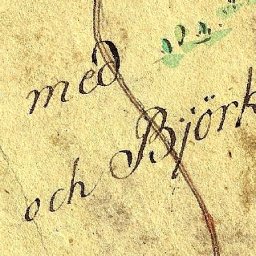 med
och Björk